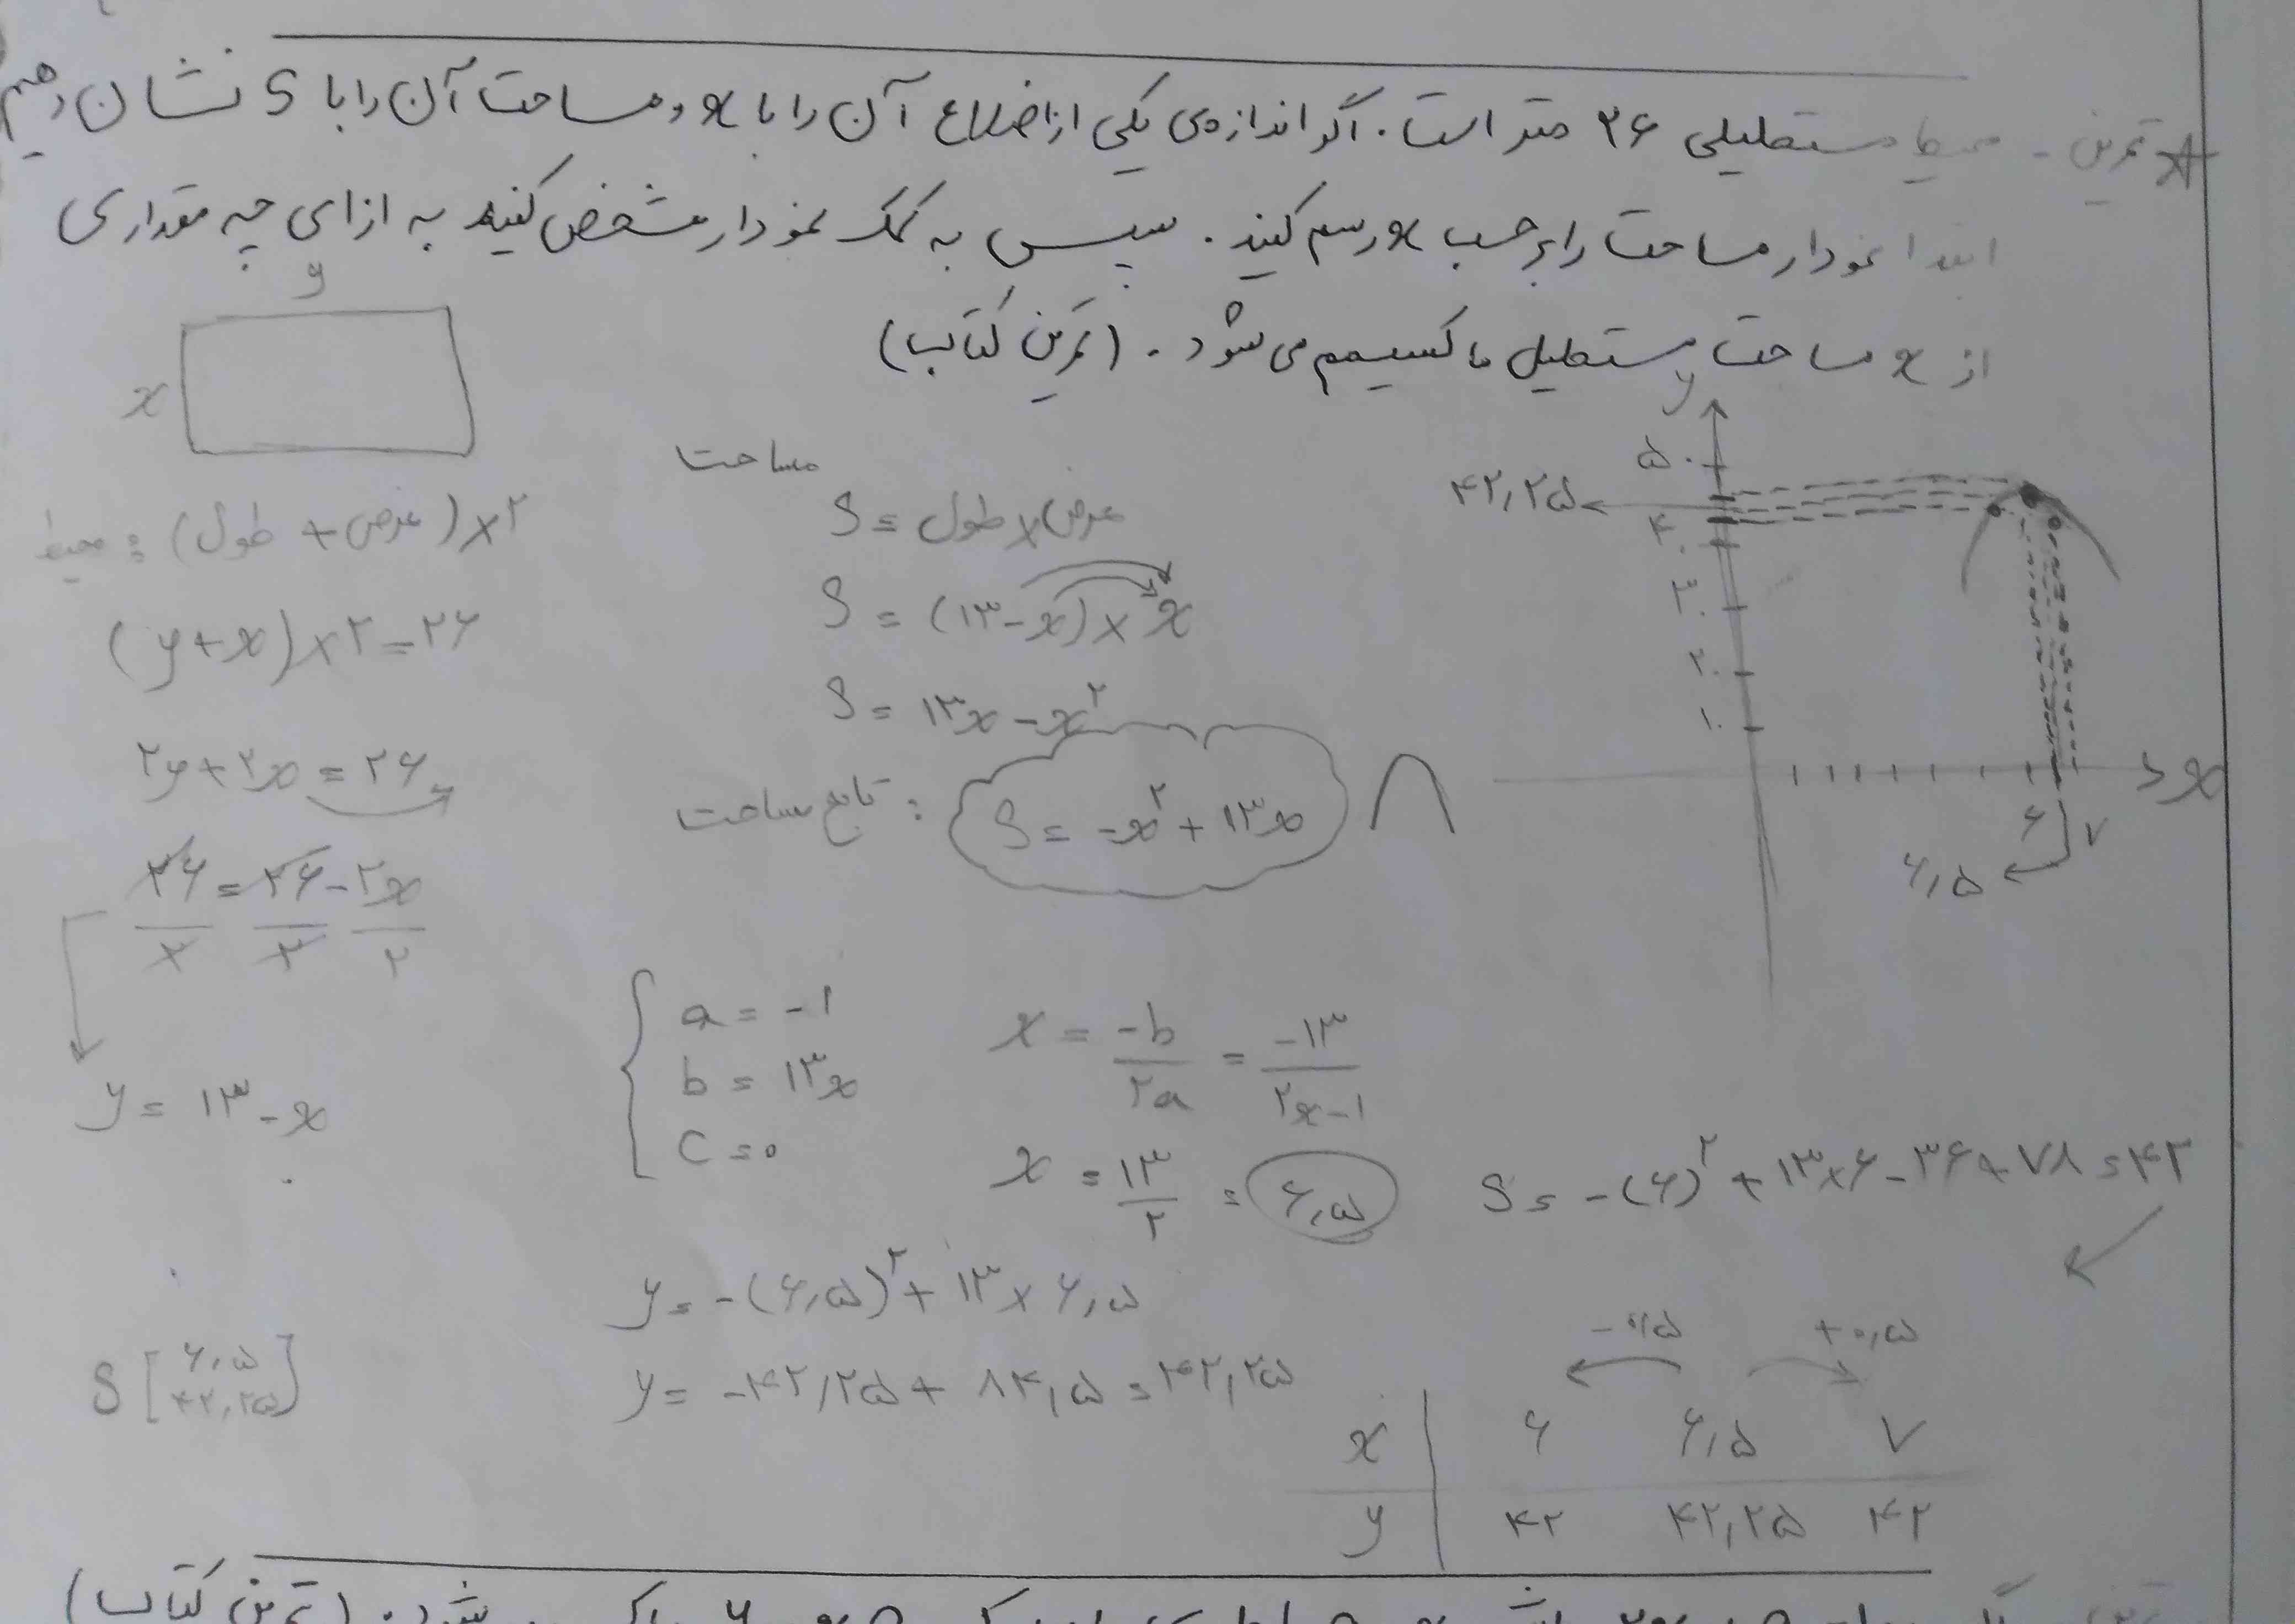 * تمرین - محیط مستطیلی ۲۶ متر است. اگر اندازه‌ی یکی از اضلاع آن را با x و مساحت آن را با S نشان دهیم
ابتدا نمودار مساحت را برحسب x رسم کنید. سپس به کمک نمودار مشخص کنید به ازای چه مقداری
از x مساحت مستطیل ماکسیمم می‌شود. (تمرین کتاب)
y
x
محیط: (طول + عرض) × ۲
(y+x)×۲=۲۶
۲y+۲x=۲۶
y=۱۳-x
مساحت
S = طول × عرض
S = (۱۳-x) × x
S = ۱۳x - x²
تابع مساحت: S = -x² + ۱۳x
y
۵۰
۴۲,۲۵
۴۰
۳۰
۲۰
۱۰
x
۶ ۷
۶,۵
a = -۱
b = ۱۳x
c = ۰
x = -b/۲a = -۱۳/۲×-۱
x = ۱۳/۲ = ۶,۵
S = -(۶)² + ۱۳×۶ - ۳۶ + ۷۸ = ۴۲
y = -(۶,۵)² + ۱۳ × ۶,۵
y = -۴۲,۲۵ + ۸۴,۵ = ۴۲,۲۵
S [۶,۵ ۴۲,۲۵]
-۰,۵ +۰,۵
x ۶ ۶,۵ ۷
y ۴۲ ۴۲,۲۵ ۴۲
(تمرین کتاب)